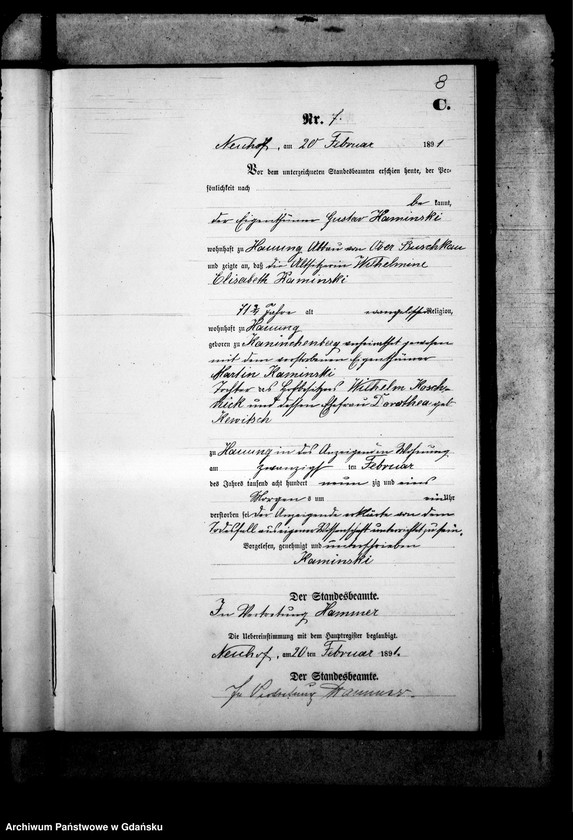 8
C.
Nr. 7.
Neuhof, am 20 Februar 1891
Vor dem unterzeichneten Standesbeamten erschien heute, der Per-
sönlichkeit nach
be kannt,
der Eigenthümer Gustav Kaminski
wohnhaft zu Hauung Abbau von Ober Buschkau
und zeigte an, daß die Altsitzerin Wilhelmine
Elisabeth Kaminski
71 1/2 Jahre alt evangelischer Religion,
wohnhaft zu Hauung
geboren zu Kaninchenberg verheirathet gewesen
mit dem verstorbenen Eigenthümer
Martin Kaminski
Tochter des Hofbesitzers Wilhelm
und dessen Ehefrau Dorothea geb
zu Hauung in des Anzeigenden Wohnung
am zwanzigs ten Februar
des Jahres tausend acht hundert neun zig und eins
Morgens um ein Uhr
verstorben sei. Der Anzeigende erklärte von dem
Todesfall aus eigener Wissenschaft unterrichtet zu sein.
Vorgelesen, genehmigt und unterschrieben
Kaminski
Der Standesbeamte.
In Vertretung Hammer
Die Uebereinstimmung mit dem Hauptregister beglaubigt.
Neuhof, am 20 ten Februar 1891.
Der Standesbeamte.
In Vertretung Hammer.
Archiwum Państwowe w Gdańsku